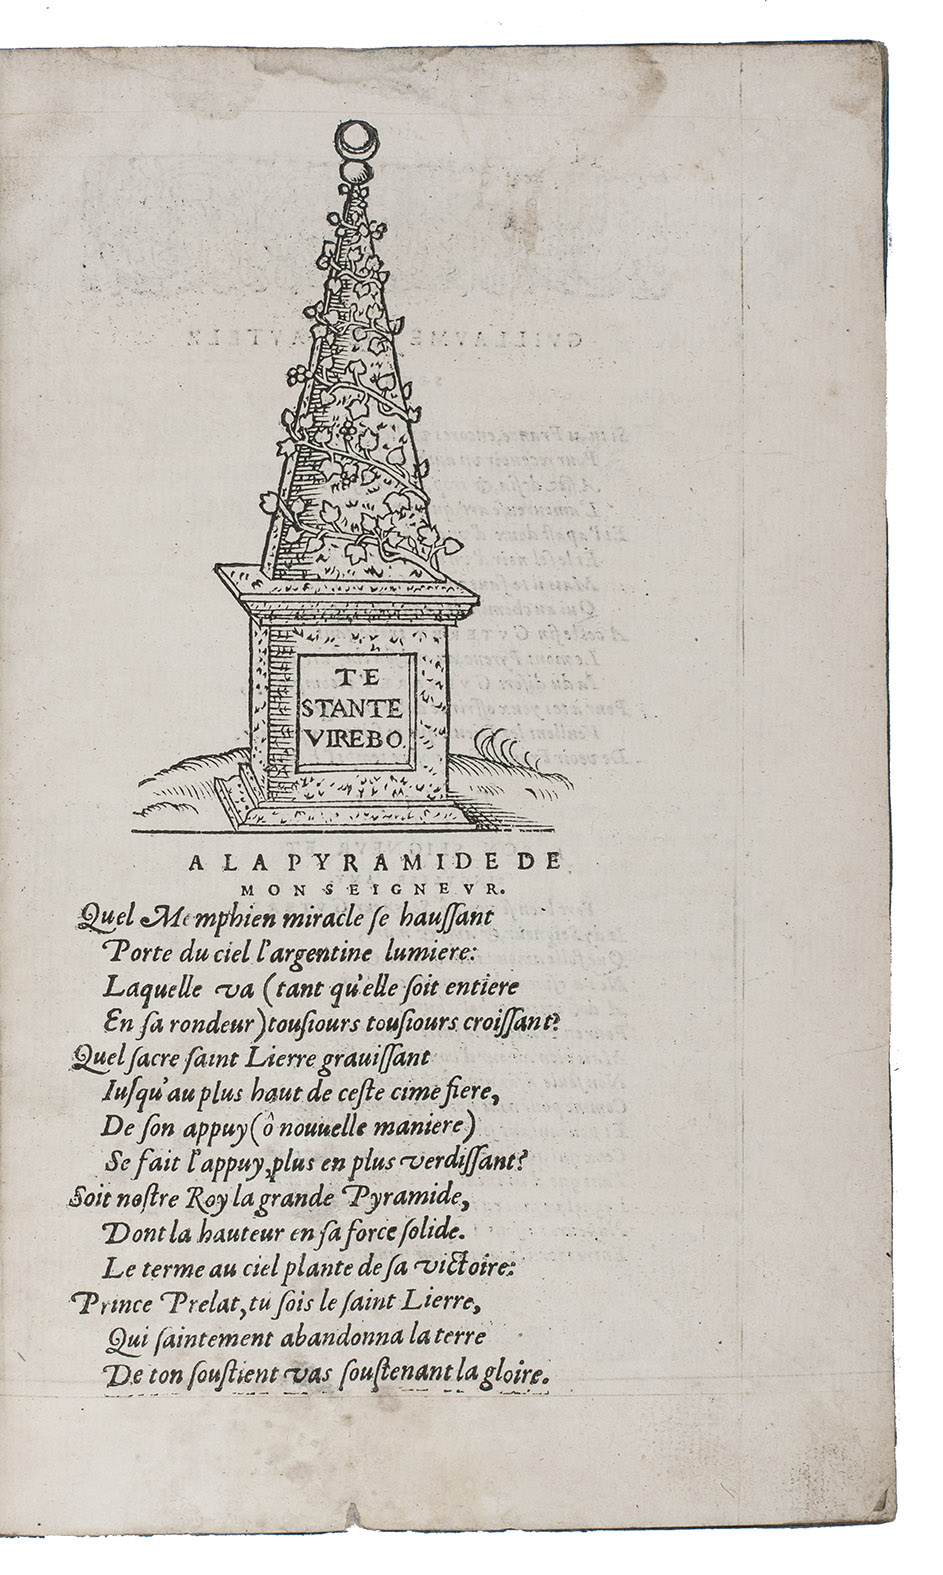 TE
STANTE
VIREBO.
A LA PYRAMIDE DE
MONSEIGNEVR.
Quel Memphien miracle se haussant
Porte du ciel l'argentine lumiere:
Laquelle va (tant qu'elle soit entiere
En sa rondeur) tousiours tousiours croissant?
Quel sacre saint Lierre grauissant
Iusqu'au plus haut de ceste cime fiere,
De son appuy (ô nouuelle maniere)
Se fait l'appuy, plus en plus verdissant?
Soit nostre Roy la grande Pyramide,
Dont la hauteur en sa force solide.
Le terme au ciel plante de sa victoire:
Prince Prelat, tu sois le saint Lierre,
Qui saintement abandonna la terre
De ton soustient vas soustenant la gloire.